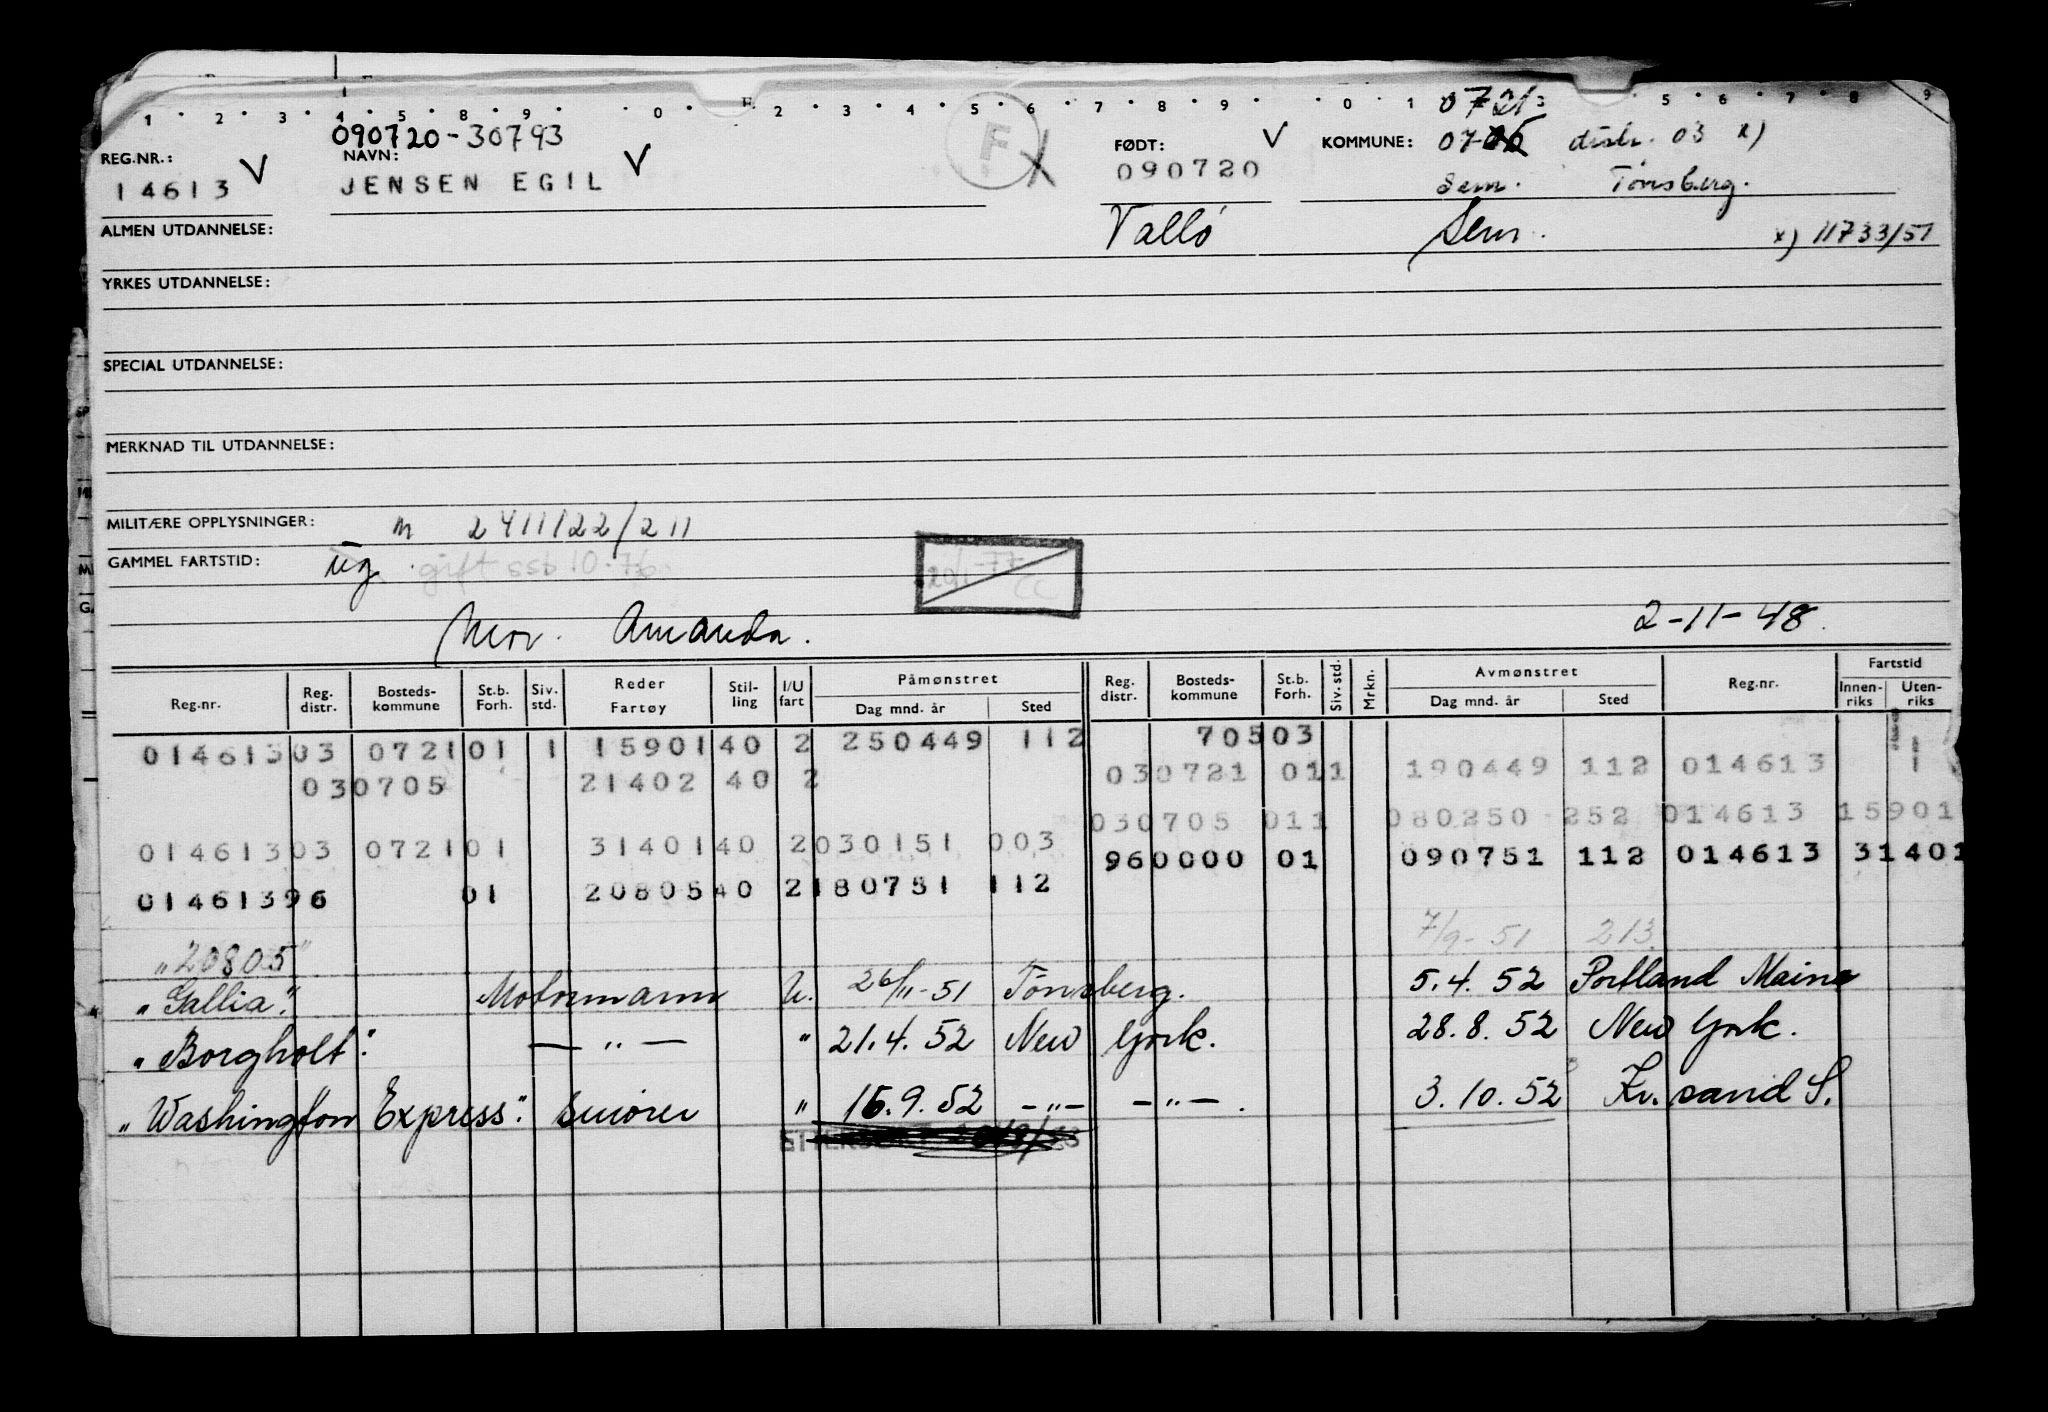 1 2 3 4 5 8 9 0 2 3 4 5 6 7 8 9 0 1 3 5 6 7 8 9
090720-30793 F 0721
REG.NR.: NAVN: FØDT: KOMMUNE: 0705 distr. 03 x)
14613 V JENSEN EGIL V 090720 V Sem. Tønsberg.
ALMEN UTDANNELSE: Valló Sem. x) 11733/51
YRKES UTDANNELSE:
SPECIAL UTDANNELSE:
MERKNAD TIL UTDANNELSE:
MILITÆRE OPPLYSNINGER: M 2411/22/211
GAMMEL FARTSTID: ug. gift ssb 10.76 20/1-77 CC
Mor. Amanda. 2-11-48.
Reg.nr. Reg. distr. Bosteds-kommune St.b. Forh. Siv. std. Reder Fartøy Stil-ling I/U fart Påmønstret Dag mnd. år Sted Reg. distr. Bosteds-kommune St.b. Forh. Siv. std. Mrkn. Avmønstret Dag mnd. år Sted Reg.nr. Fartstid Innen-riks Uten-riks
014613 03 0721 01 1 15901 40 2 250449 112 70503
030705 21402 40 2 030721 011 190449 112 014613 1
030705 011 080250 252 014613 15901
014613 03 0721 01 31401 40 2 030151 003 960000 01 090751 112 014613 31401
014613 96 01 20805 40 2 180751 112
"20805" 7/9-51 213
"Gallia". Motormann U. 26/11-51 Tønsberg. 5.4.52 Portland Maine
"Borgholt". — " — " 21.4.52 New York. 28.8.52 New York.
"Washington Express". Smører " 16.9.52 -"- -"-. 3.10.52 Kr.sand S.